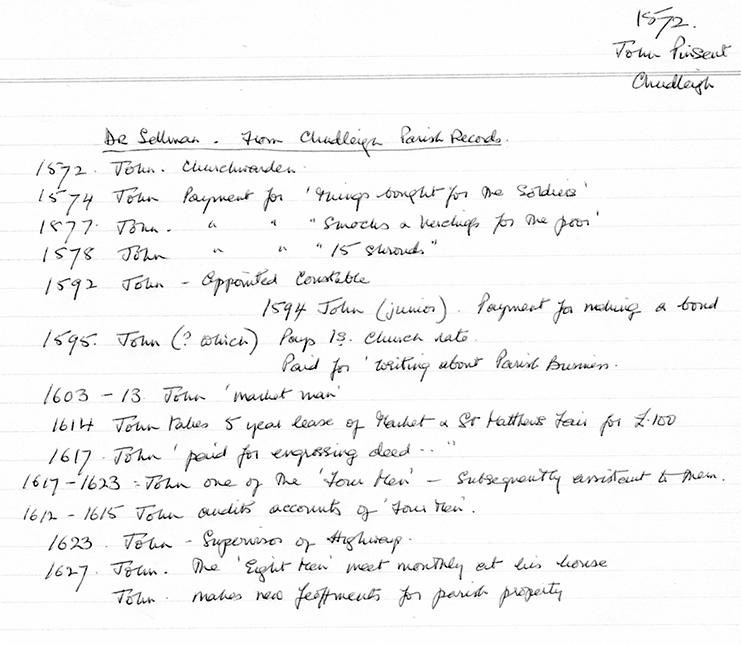 1572.
John Pinsent
Chudleigh
Dr Sellman. From Chudleigh Parish Records.
1572. John. Churchwarden.
1574 John Payment for 'things bought for the Soldiers'
1577. John. " " "Smocks & for the poor'
1578 John " " "15 shrouds"
1592 John - Appointed Constable
1594 John (junior). Payment for making a bond
1595. John (? which) Pays 1s. Church rate.
Paid for 'writing about Parish Business.
1603 - 13. John 'market man'
1614 John takes 5 year lease of Market & St Matthews Fair for £100
1617. John 'paid for engrossing deed .. "
1617-1623 = John one of the 'Four Men' - Subsequently assistant to them.
1612 - 1615 John audits accounts of 'Four Men'.
1623. John - Supervisor of Highway.
1627. John. The 'Eight Men' meet monthly at his house
John. makes new feoffments for parish property